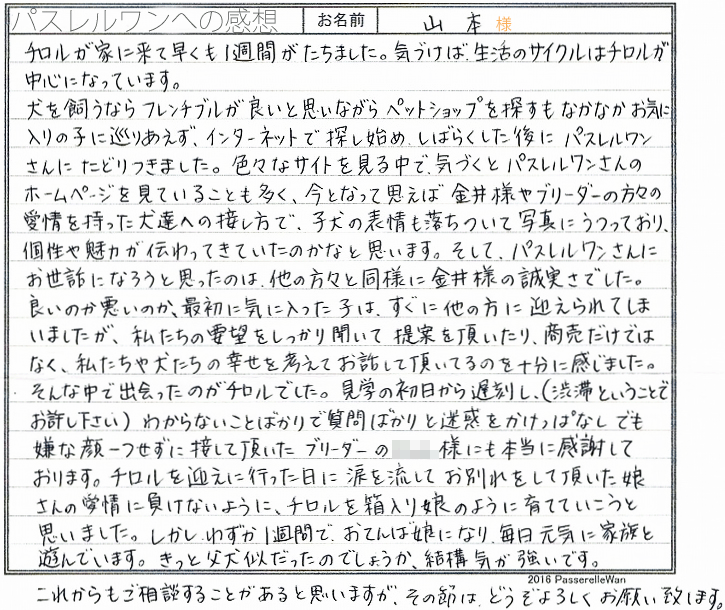 パスレルワンへの感想 お名前 山本 様
チロルが家に来て早くも1週間がたちました。気づけば、生活のサイクルはチロルが
中心になっています。
犬を飼うならフレンチブルが良いと思いながらペットショップを探すもなかなかお気に
入りの子に巡りあえず、インターネットで探し始め、しばらくした後にパスレルワン
さんにたどりつきました。色々なサイトを見る中で、気づくとパスレルワンさんの
ホームページを見ていることも多く、今となって思えば金井様やブリーダーの方々の
愛情を持った犬達への接し方で、子犬の表情も落ちついて写真にうつっており、
個性や魅力が伝わってきていたのかなと思います。そして、パスレルワンさんに
お世話になろうと思ったのは、他の方々と同様に金井様の誠実さでした。
良いのか悪いのか、最初に気に入った子は、すぐに他の方に迎えられてしま
いましたが、私たちの要望をしっかり聞いて提案を頂いたり、商売だけでは
なく、私たちや犬たちの幸せを考えてお話して頂いてるのを十分に感じました。
そんな中で出会ったのがチロルでした。見学の初日から遅刻し、(渋滞ということで
お許し下さい)わからないことばかりで質問ばかりと迷惑をかけっぱなしでも
嫌な顔一つせずに接して頂いたブリーダーの 様にも本当に感謝して
おります。チロルを迎えに行った日に涙を流してお別れをして頂いた娘
さんの愛情に負けないように、チロルを箱入り娘のように育てていこうと
思いました。しかし、わずか1週間で、おてんば娘になり、毎日元気に家族と
遊んでいます。きっと父犬似だったのでしょうか、結構気が強いです。
2016 PasserelleWan
これからもご相談することがあると思いますが、その節は、どうぞよろしくお願い致します。